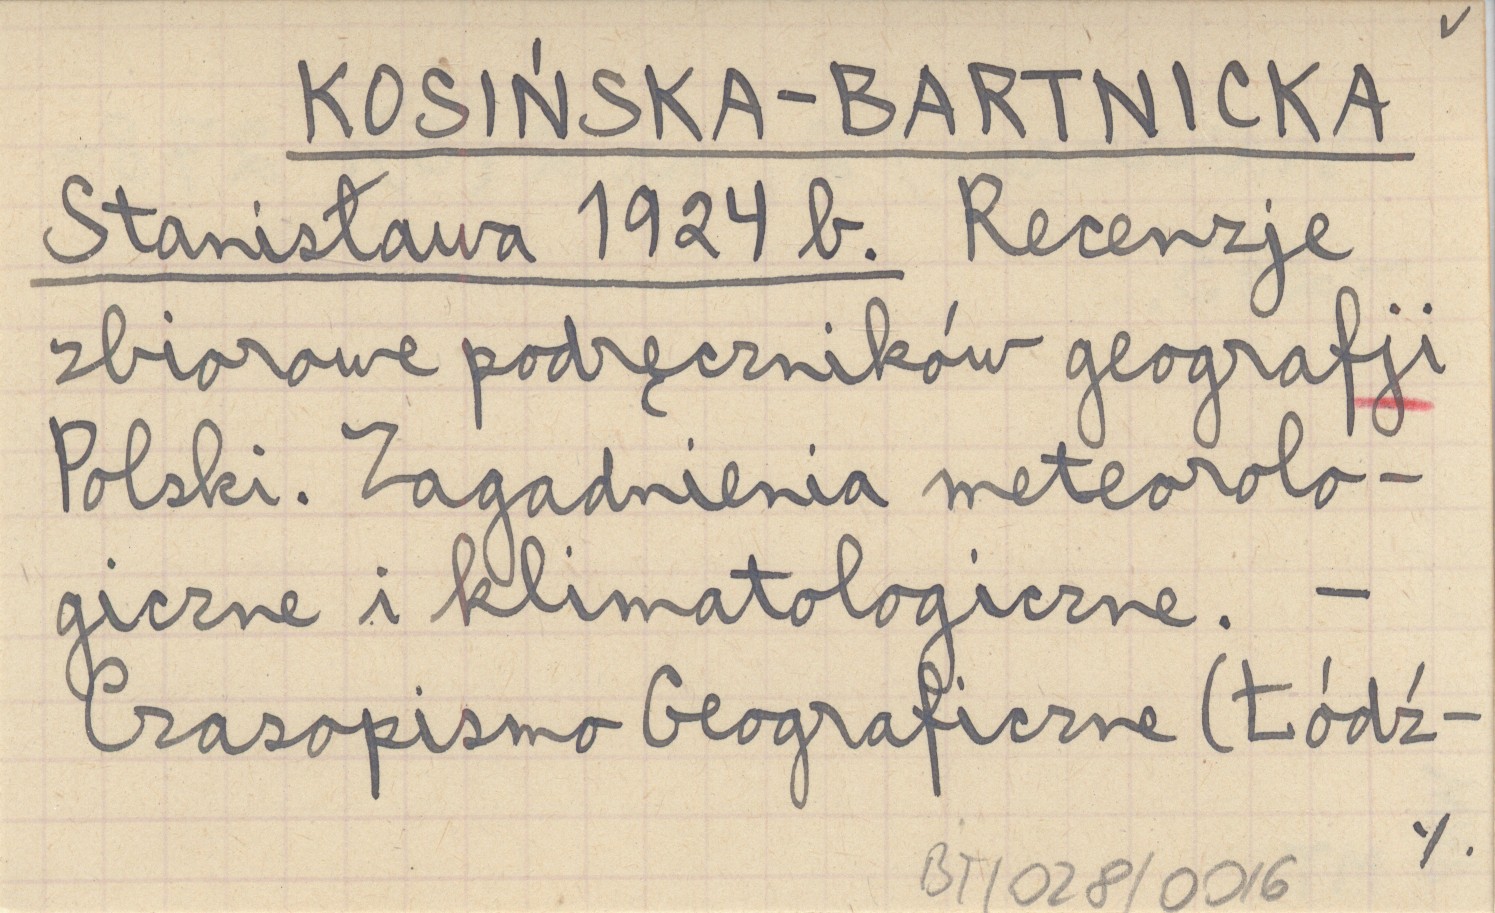 KOSIŃSKA-BARTNICKA
Stanisława 1924 b. Recenzje
zbiorowe podręczników geografji
Polski. Zagadnienia meteorolo-
giczne i klimatologiczne. –
Czasopismo Geograficzne (Łódź-
./.
BT/028/0016